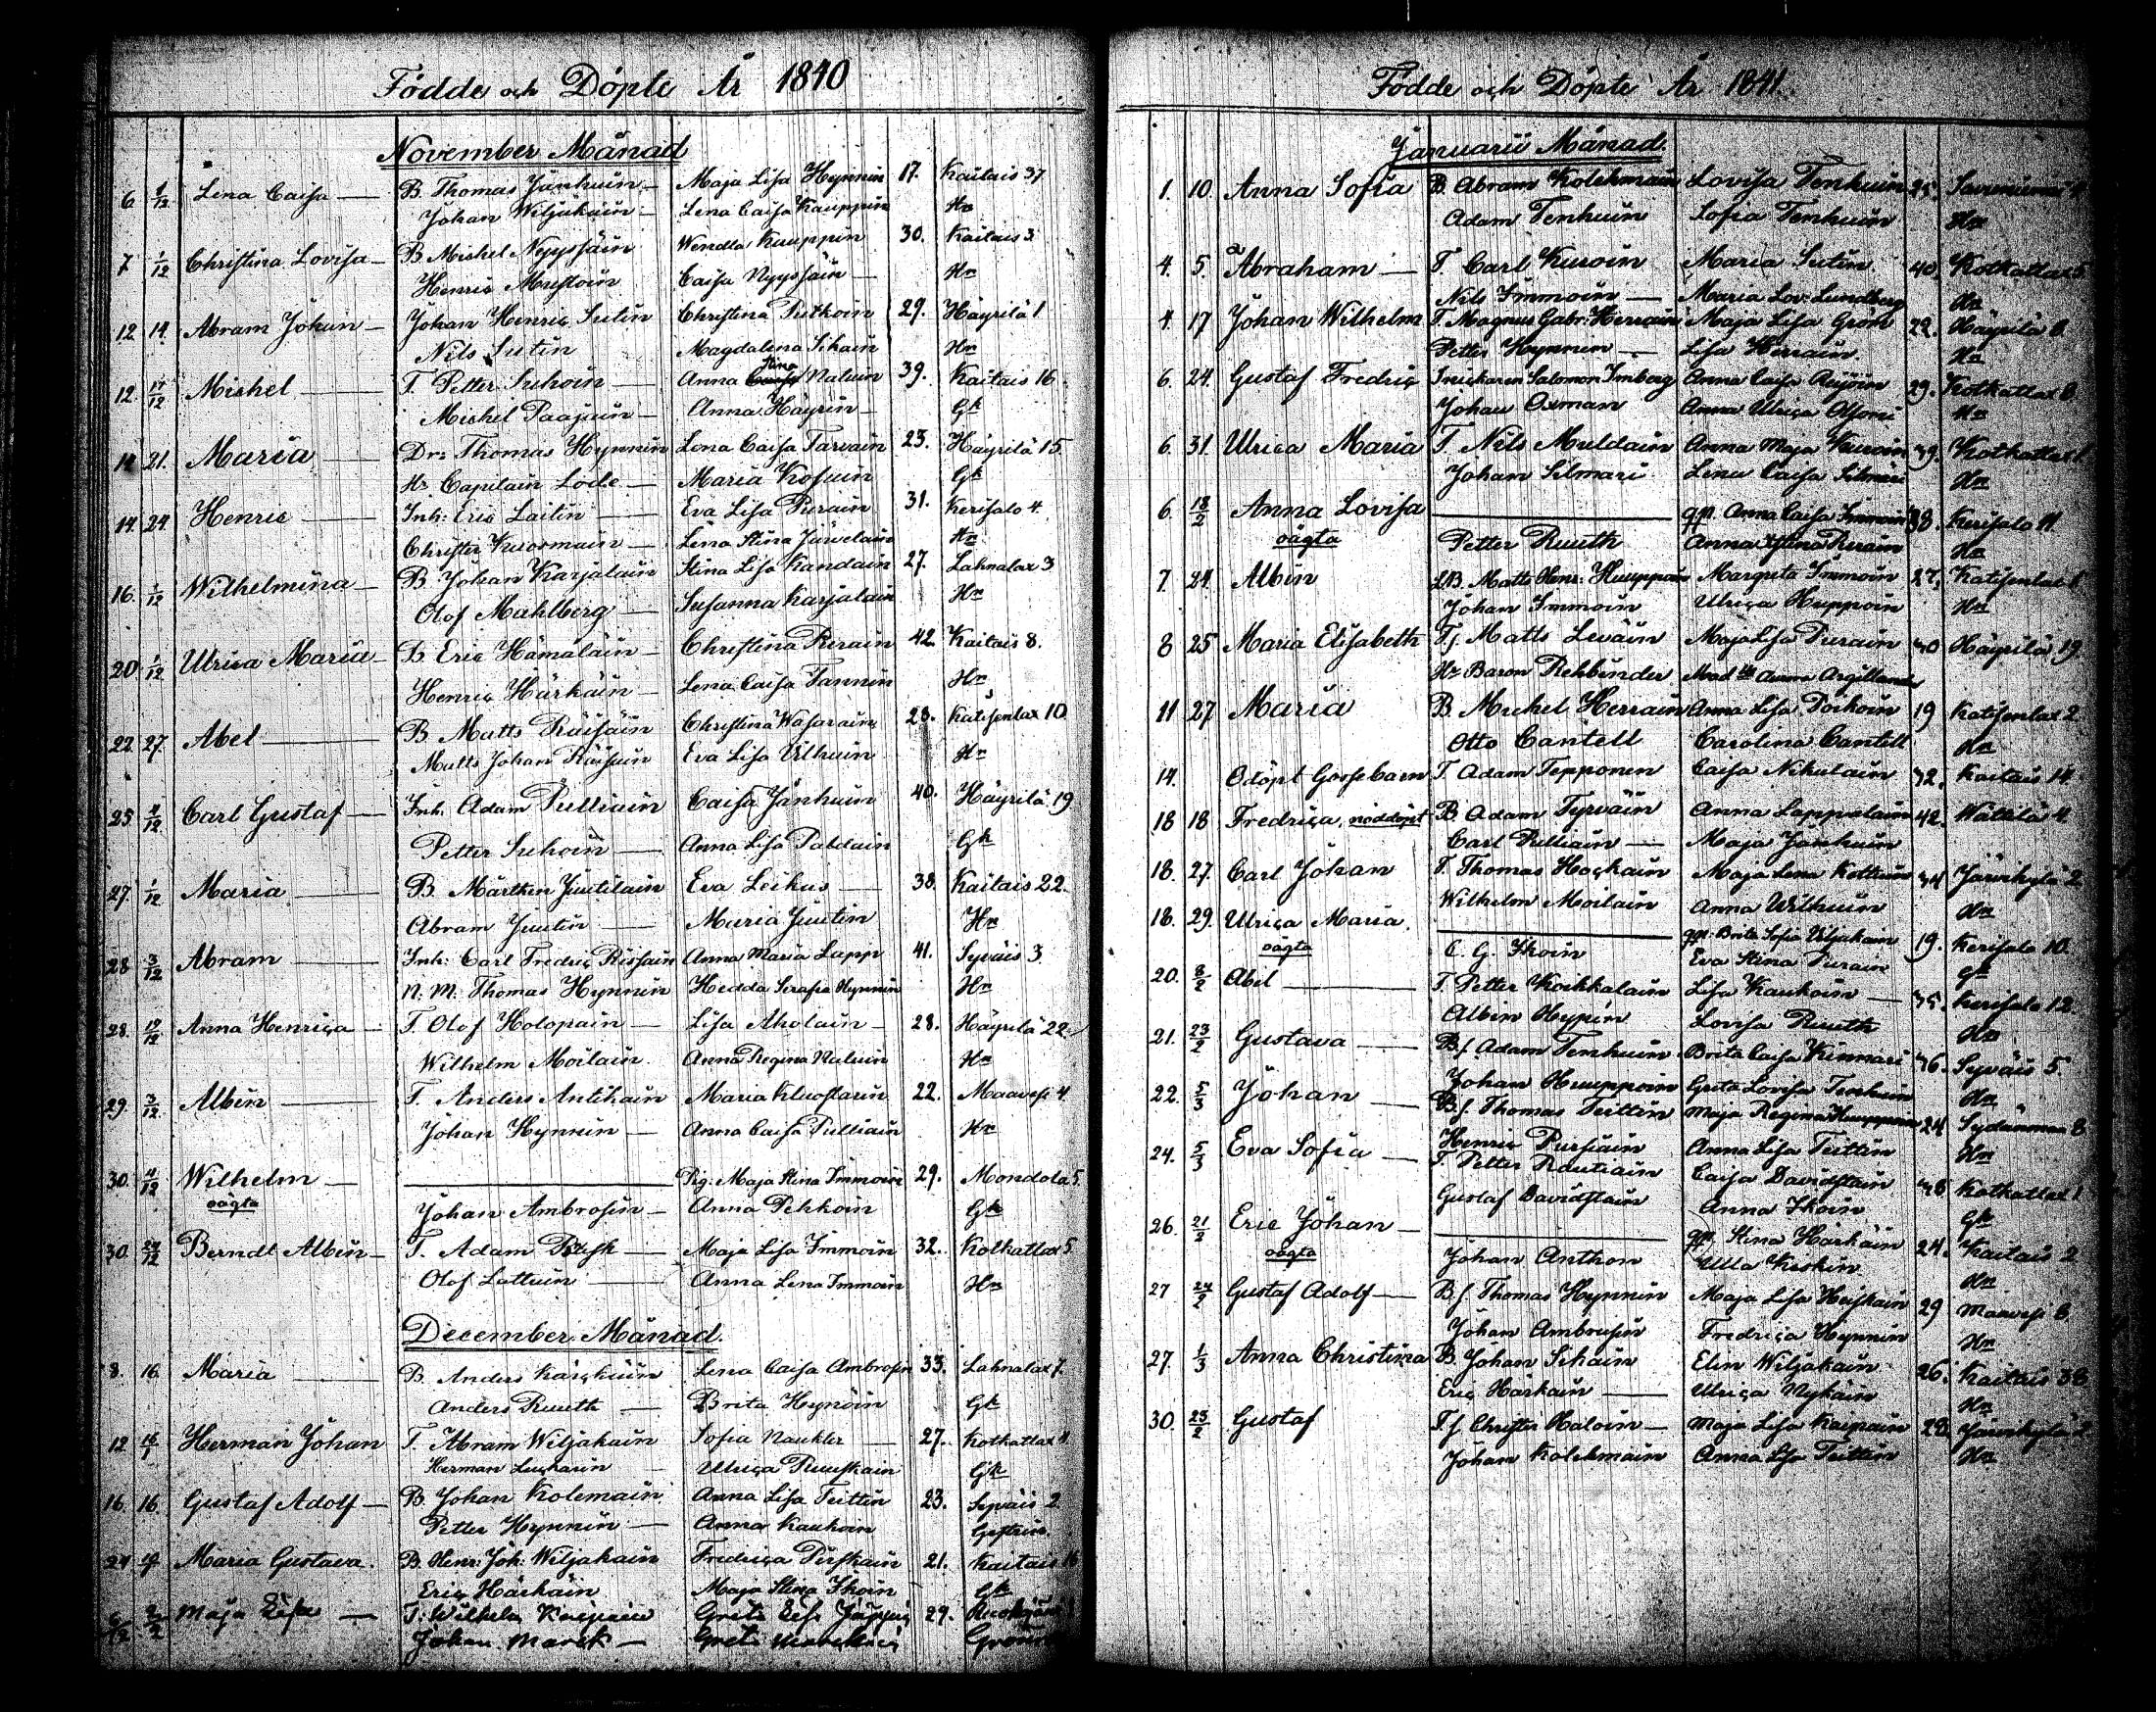 Födde och Döpte År 1840
November Månad
6 1/12 Lena Caisa B. Thomas Jänhuin Maja Lisa Hynnin 17. Kaitais 37
Johan Wiljakain Lena Caisa Kauppin Hn
7 1/12 Christina Lovisa B Michel Nyyssäin Wendla Kauppin 30. Kaitais 3
Henric Mustoin Caisa Nyyssäin Hn
12 14. Abram Johan Johan Henric Sutin Christina Putkoin 29. Häyrilä 1
Nils Sutin Magdalena Sikain Hn
12 Michel T. Petter Suhoin Anna Stina Naluin 39. Kaitais 16
Michel Paajain Anna Häyrin Gk
14 21. Maria Dr: Thomas Hynnin Lena Caisa Tarvain 23. Häyrilä 15.
Hr Capitain Lode Maria Kosuin Gk
14 24 Henric Inh: Eric Laitin Eva Lisa Purain 31. Kerisalo 4
Christer Kuosmain Lena Stina Järvelain Hn
16. 1/12 Wilhelmina B Johan Karjalain Stina Lisa Kandain 27. Lahnalax 3
Olof Mahlberg Susanna Karjalain Hn
20 1/12 Ulrica Maria D Eric Hämäläin Christina Purain 42 Kaitais 8.
Henric Härkäin Lena Caisa Tannin Hn
22 27. Abel B Matts Räisäin Christina Wasarain 28. Katisenlax 10
Matts Johan Räisäin Eva Lisa Ulhuin Hn
25 4/12 Carl Gustaf Inh. Adam Pulliain Caisa Jänhuin 40. Häyrilä 19
Petter Suhoin Anna Lisa Pöldain Gk
27 1/12 Maria B. Mårthen Juutilain Eva Leikus 38. Kaitais 22.
Abram Juutin Maria Juutin Hn
28 3/12 Abram Inh: Carl Fredric Rissain Anna Maria Lapp 41. Syväis 3
N. M: Thomas Hynnin Hedda Serafia Hynnin Hn
28. 19/12 Anna Henrica T. Olof Holopain Lisa Aholain 28. Häyrilä 22
Wilhelm Moilain Anna Regina Naluin Hn
29. 3/12 Albin T. Anders Antikain Maria Kluostarin 22. Maavesi 4
Johan Hynnin Anna Caisa Pulliain Hn
30. 4/12 Wilhelm Pig. Maja Stina Immoin 29. Mondola 5
oägta Johan Ambrosin Anna Pehkoin Gk
30. 24/12 Berndt Albin T. Adam Rusk Maja Lisa Immoin 32. Kotkatlax 5
Olof Lattuin Anna Lena Immoin Hn
December Månad.
8. 16 Maria B. Anders Kärckäin Lena Caisa Ambrosin 33. Lahnalax 7.
Anders Ruuth Brita Hynöin Gk
12 Herman Johan T. Abram Wiljakain Sofia Naukler 27. Kotkatlax 4
Herman Luckarin Ulrica Ruuskain Gk
16. 16. Gustaf Adolf B. Johan Kolemain Anna Lisa Teittin 23. Sepäis 2
Petter Hynnin Anna Kaukoin
24 Maria Gustava. B. Henr: Joh: Wiljakain Fredrica Pirskain 21. Kaitais 16
Eric Härkäin Maja Stina Ikoin Gk
Maja Lisa T. Wilhelm Kaipain Greta Lisa Jäppin 29.
Johan Marck Greta
Födde och Döpte År 1841.
Januarii Månad.
1. 10. Anna Sofia B. Abram Kolehmain Lovisa Tenhuin 25.
Adam Tenhuin Sofia Tenhuin Hn
4. 5. Abraham T. Carl Kuroin Maria Sutin 40. Kotkatlax 5
Nils Immoin Maria Lov: Lundberg Hn
4. 17 Johan Wilhelm T. Magnus Gabr: Herrain Maja Lisa Grön 22. Häyrilä 8.
Petter Hynnin Lisa Herrain Hn
6. 24. Gustaf Fredric Snickaren Salomon Imberg Anna Caisa Reijoin 29. Kotkatlax 8
Johan Oxman Anna Ulrica Olsoni Hn
6. 31. Ulrica Maria T. Nils Muldain Anna Maja Kuroin 39. Kotkatlax 1
Johan Silmari Lena Caisa Silmari Hn
6. 18/2 Anna Lovisa qp. Anna Caisa Immoin 38. Kerisalo 11
oägta Petter Ruuth Anna Stina Purain Hn
7. 24. Albin LB. Matts Henr: Huuppoin Margreta Immoin 27. Katisenlax 1
Johan Immoin Ulrica Huppoin Hn
8 25 Maria Elisabeth Ts. Matts Leväin Maja Lisa Purain 40 Häyrilä 19.
Hr Baron Rehbinder Mad:lle Aurora Argillander
11 27 Maria B. Michel Herrain Anna Lisa Poikoin 19 Katisenlax 2
Otto Cantell Carolina Cantell Hn
14. Odöpt Gossebarn T. Adam Tepponen Caisa Nikulain 32. Kaitais 14
18 18. Fredrica, nöddöpt B. Adam Tyrväin Anna Lappalain 42. Wättilä 4.
Carl Pulliain Maja Jänhuin
18. 27. Carl Johan T. Thomas Hockain Maja Lena Kottuin 34 Järvikylä 2
Wilhelm Moilain Anna Wilhuin Hn
18. 29. Ulrica Maria. qp: Brita Sofia Wiljakain 19. Kerisalo 10.
oägta C. G. Ikoin Eva Stina Purain Gk
20. 8/2 Abel T. Petter Koikkalain Lisa Kaukoin 35. Kerisalo 12.
Albin Hypin Lovisa Ruuth Hn
21. 23/2 Gustava Bs. Adam Tenhuin Brita Caisa Kinnari 36. Syväis 5.
Johan Huuppoin Greta Lovisa Tenhuin Hn
22. 5/3 Johan Bs. Thomas Teittin Maja Regina Huuppoin 24 Sydänmaa 8
Henric Pursiain Anna Lisa Teittin Hn
24. 5/3 Eva Sofia T. Petter Rautiain Caisa Davidstain 38 Kotkatlax 1
Gustaf Davidstain Anna Ikoin Gk
26. 21/2 Eric Johan qp. Stina Härkäin 24. Kaitais 2
oägta Johan Anthon Ulla Keskin Hn
27 24/2 Gustaf Adolf Bs. Thomas Hynnin Maja Lisa Heiskain 29 Maavesi 6
Johan Ambrosin Fredrica Hynnin Hn
27. 1/3 Anna Christina B. Johan Sikain Elin Wiljakain 26. Kaitais 38
Eric Härkäin Ulrica Nykäin Hn
30. 23/2 Gustaf Ts Christer Haloin Maja Lisa Kaipain 28. Järvikylä 2
Johan Kolehmain Anna Lisa Teittin Hn